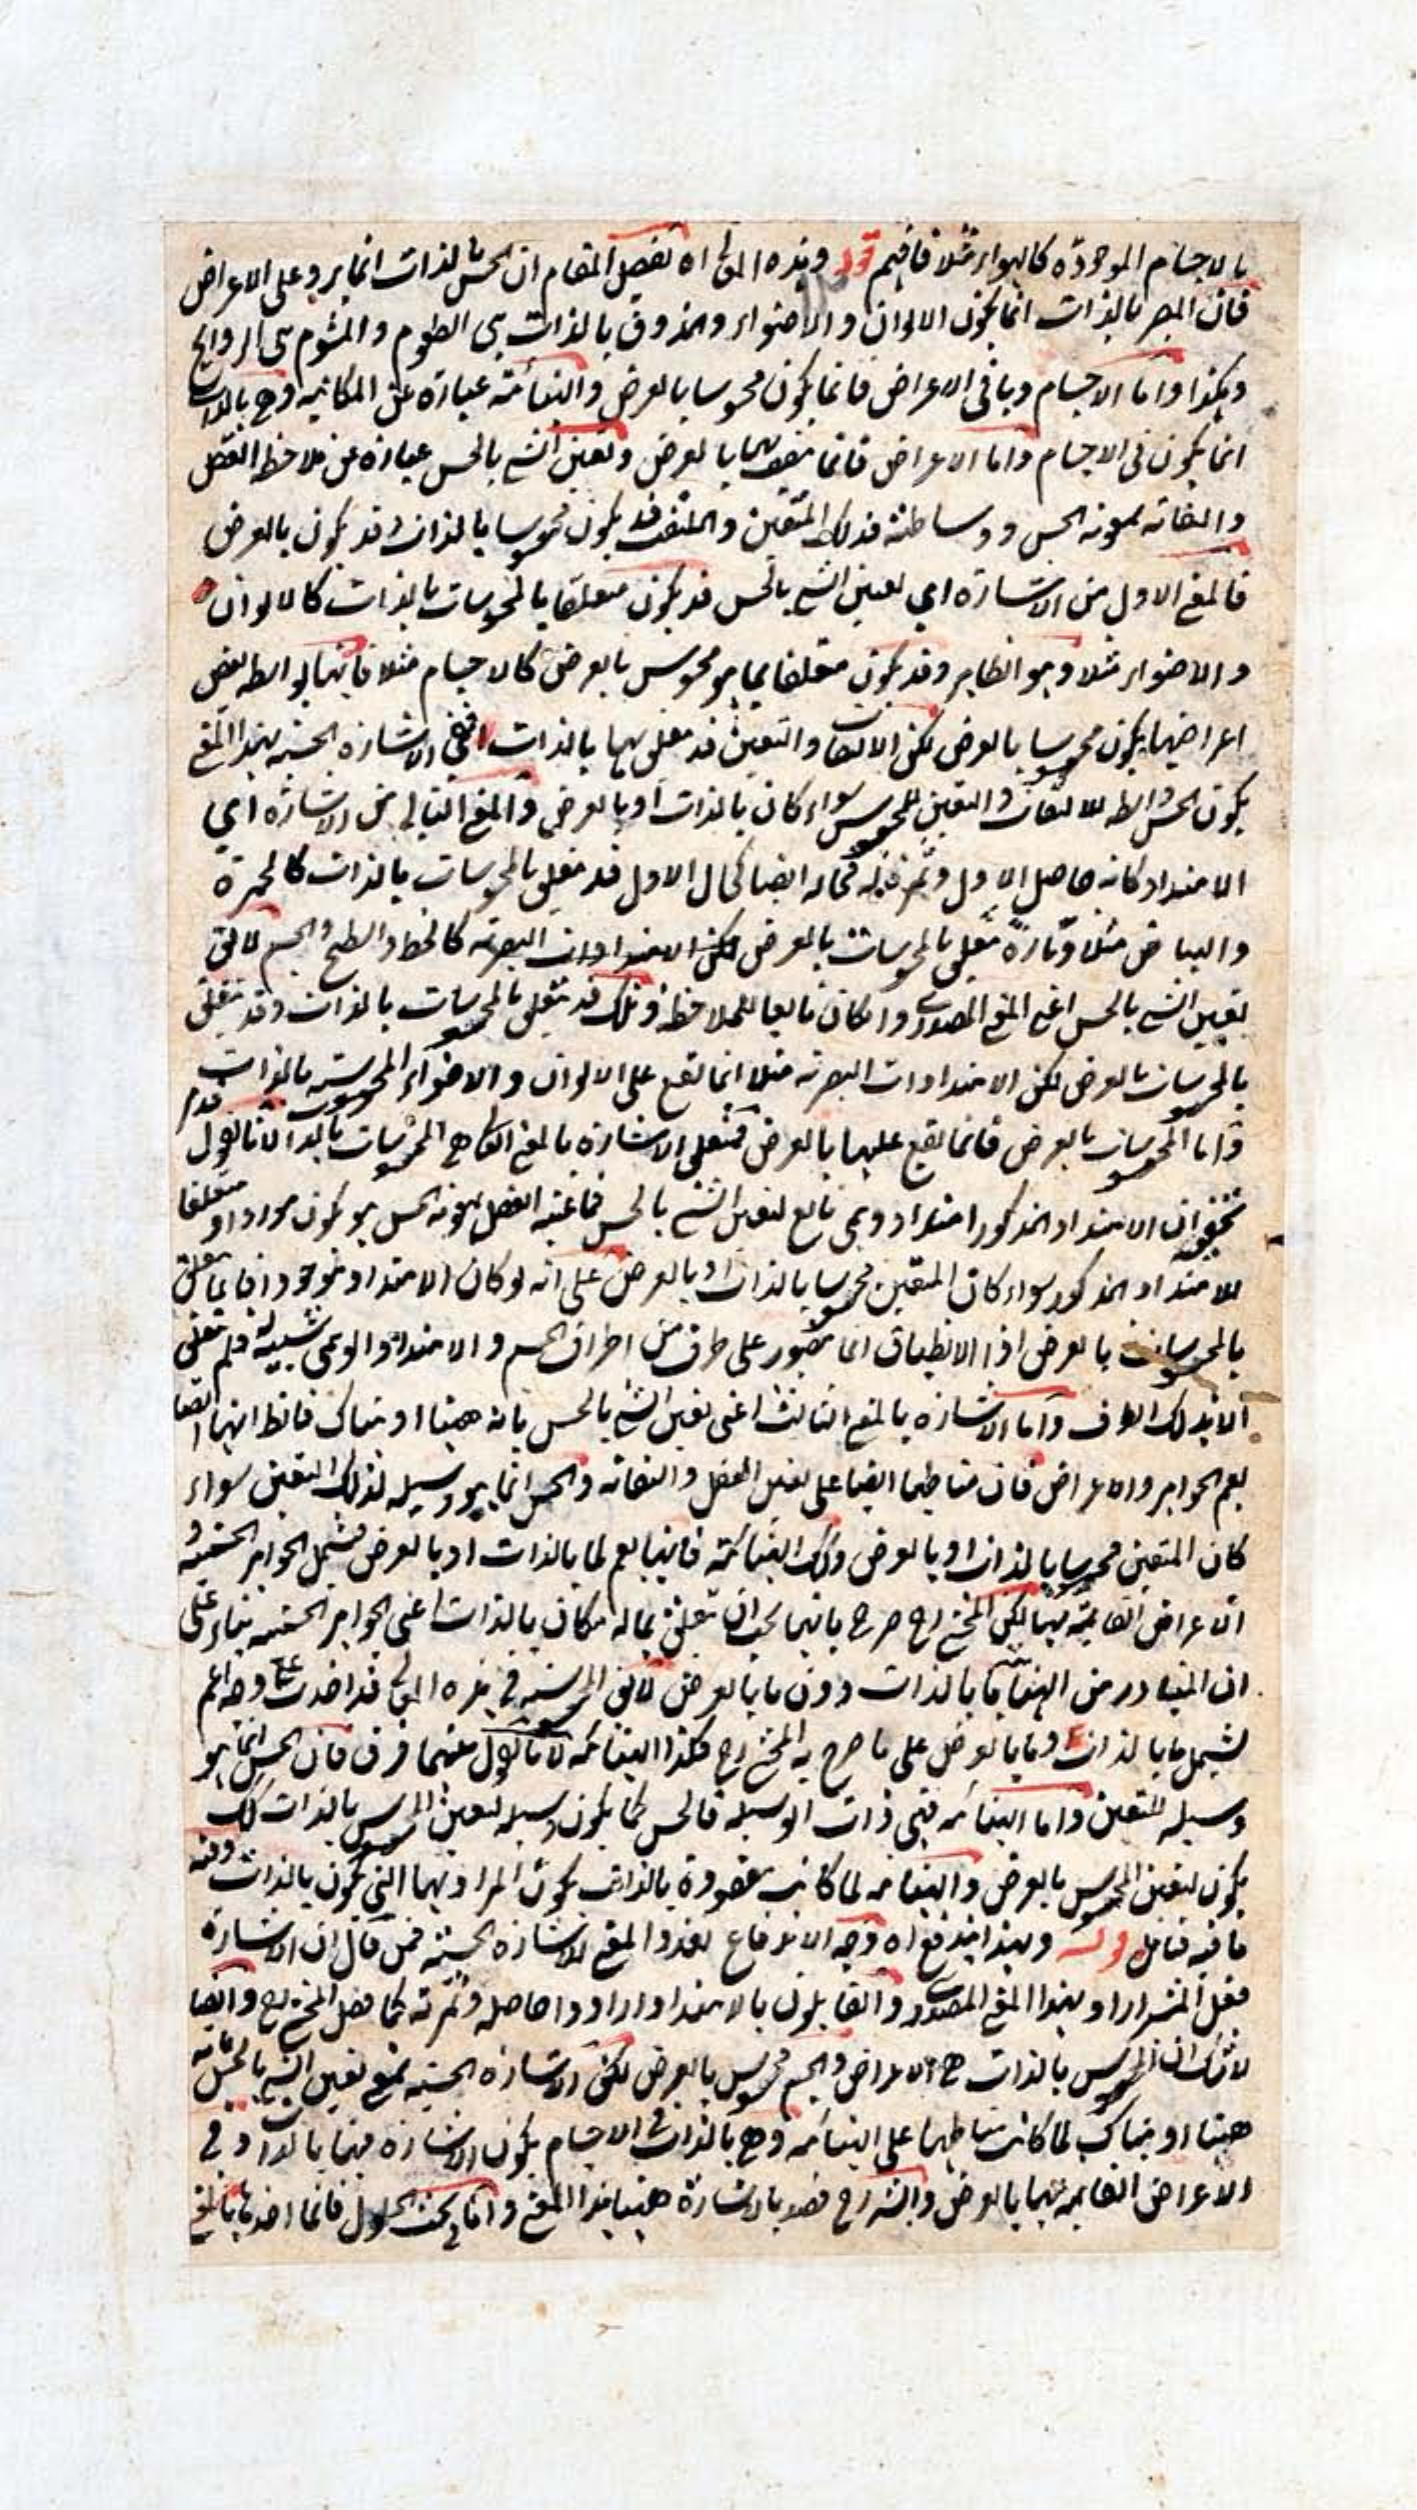 بالاجسام الموجودة كالهواء مثلا فافهم قوله وهذه المعاني اه تفصيل المقام ان الحس بالذات انما يرد على الاعراض
فان المبصر بالذات انما يكون الالوان والاضواء والمذوق بالذات هي الطعوم والمشموم هي الروائح
وهكذا واما الاجسام وباقي الاعراض فانما يكون محسوسا بالعرض والهنائية عبارة عن المكانية وهي بالذات
انما يكون في الاجسام واما الاعراض فانما يتصف بها بالعرض وتعيين الشيء بالحس عبارة عن ملاحظة العقل
والتفاته بمعونة الحس ووساطته فذلك المتعين والملتفت قد يكون محسوسا بالذات وقد يكون بالعرض
فالمعنى الاول من الاشارة اي تعيين الشيء بالحس قد يكون متعلقا بالمحسوسات بالذات كالالوان
والاضواء مثلا وهو الظاهر وقد يكون متعلقا بما هو محسوس بالعرض كالاجسام مثلا فانها بواسطة بعض
اعراضها يكون محسوسا بالعرض لكن الالتفات والتعيين قد تعلق بها بالذات ففي الاشارة الحسية بهذا المعنى
يكون الحس واسطة للالتفات والتعيين للمحسوس سواء كان بالذات او بالعرض والمعنى الثاني من الاشارة اي
الامتداد كانه حاصل الاول وثمرته فحاله ايضا كحال الاول قد تعلق بالمحسوسات بالذات كالحمرة
والبياض مثلا وتارة تعلق بالمحسوسات بالعرض لكن الامتدادات البصرية كالخط والسطح والجسم لان
تعيين الشيء بالحس اعني المعنى المصدري وان كان تابعا للملاحظة وتلك قد تتعلق بالمحسوسات بالذات وقد تتعلق
بالمحسوسات بالعرض لكن الامتدادات البصرية مثلا انما تقع على الالوان والاضواء المحسوسة بالذات
واما المحسوسات بالعرض فانما تقع عليها بالعرض فتعلق الاشارة بالمعنى الثاني هي المحسوسات بالذات لانا نقول
ان الامتداد المذكور امتداد وهمي تابع لتعيين الشيء بالحس فما عينه العقل بمعونة الحس هو يكون موردا ومتعلقا
للامتداد المذكور سواء كان المتعين محسوسا بالذات او بالعرض على انه لو كان الامتداد موجودا فانما تعلق
بالمحسوسات بالعرض اذ الانطباق انما يتصور على طرف من اطراف الجسم والامتداد الوهمي شبيه له فلم تتعلق
الا بذلك الطرف واما الاشارة بالمعنى الثالث اعني تعيين الشيء بالحس بانه ههنا او هناك فالظ انها ايضا
يعم الجواهر والاعراض فان مناطها ايضا على تعيين العقل والتفاته والحس انما هو وسيلة لذلك التعيين سواء
كان المتعين محسوسا بالذات او بالعرض وكك الهنائية فانها يعم لما بالذات او بالعرض فيشمل الجواهر الجسمية
الاعراض القائمة بها لكن المحشي رح صرح بانها يجب ان تتعلق بما له مكان بالذات اعني الجواهر الجسمية بناء على
ان المتبادر من الهنائية ما بالذات دون ما بالعرض لان المحسوسية في هذه المعاني قد اخذت على وجه اعم
ليشمل ما بالذات وما بالعرض على ما صرح به المحشي رح فكذا الهنائية لانا نقول بينهما فرق فان الحس انما هو
وسيلة للتعيين واما الهنائية فهي ذات الوسيلة فالحس كما يكون وسيلة لتعيين المحسوس بالذات كك
يكون لتعيين المحسوس بالعرض والهنائية لما كانت مقصودة بالذات يكون المراد بها التي يكون بالذات وفيه
ما فيه فتامل قوله وبهذا اندفع اه وجه الاندفاع تعدد المعنى للاشارة الحسية فمن قال ان الاشارة
فعل المشير اراد بهذا المعنى المصدري والقائلون بالامتداد ارادوا حاصله وثمرته كما فصل المحشي رح وايضا
لا شك ان المحسوس بالذات هي الاعراض والجسم محسوس بالعرض لكن الاشارة الحسية بمعنى تعيين الشيء بالحس بانه
ههنا او هناك لما كانت مناطها على الهنائية وهي بالذات في الاجسام يكون الاشارة فيها بالذات وفي
الاعراض القائمة بها بالعرض والشارح قصد بالاشارة ههنا هذا المعنى واما في بحث الحلول فانما اخذها بالمعنى